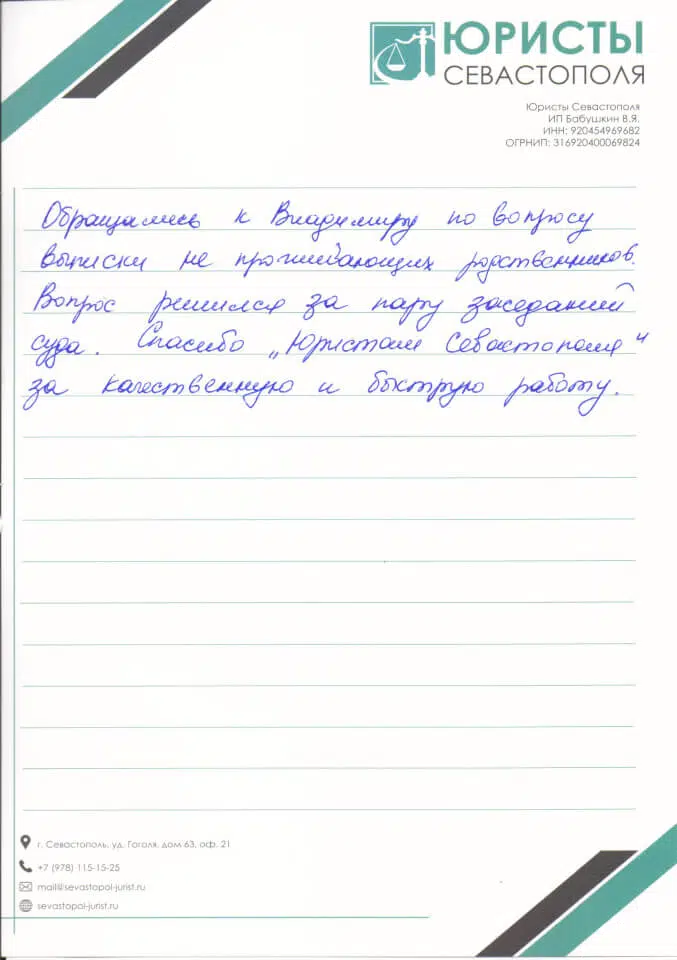 ЮРИСТЫ
СЕВАСТОПОЛЯ
Юристы Севастополя
ИП Бабушкин В.Я.
ИНН: 920454969682
ОГРНИП: 316920400069824
Обращались к Владимиру по вопросу
выписки не проживающих родственников.
Вопрос решился за пару заседаний
суда. Спасибо „Юристам Севастополя"
за качественную и быструю работу.
г. Севастополь, уд. Гоголя, дом 63, оф. 21
+7 (978) 115-15-25
mail@sevastopol-jurist.ru
sevastopol-jurist.ru